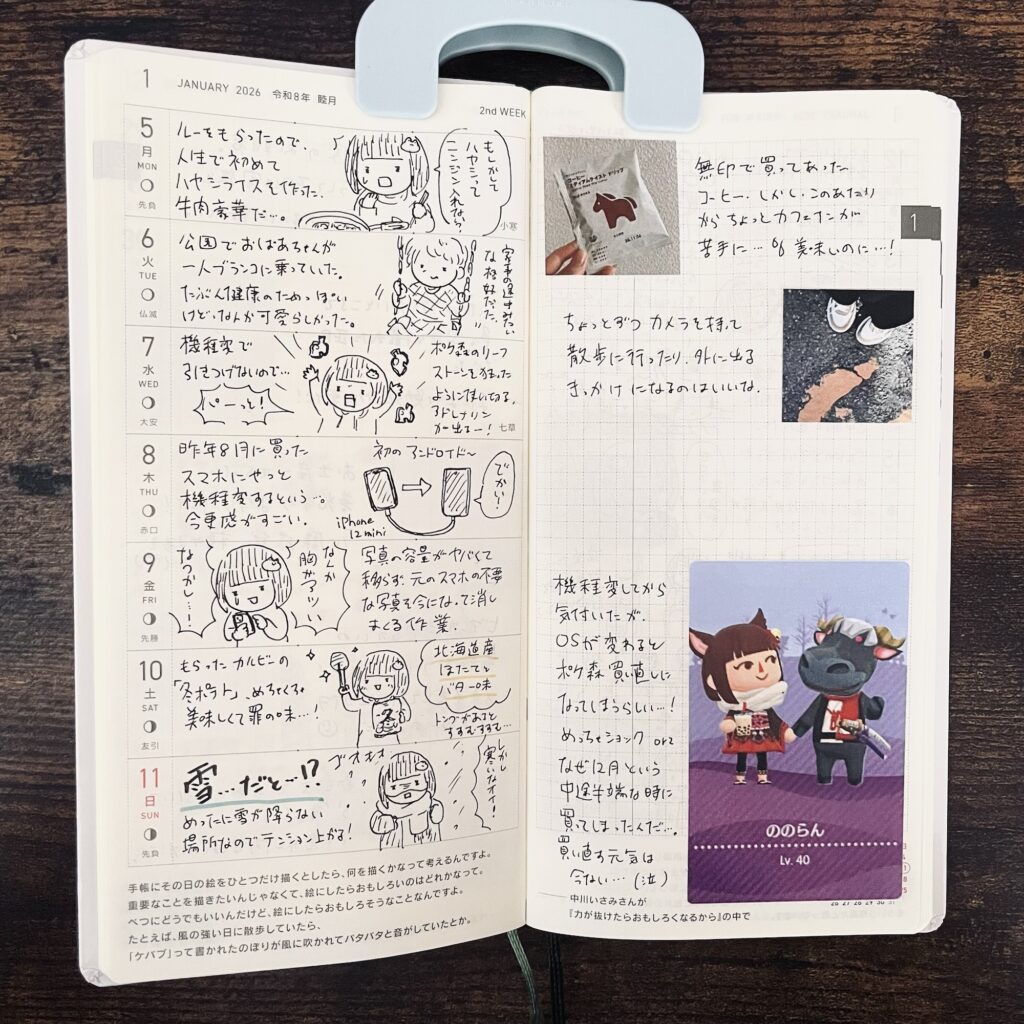 1 JANUARY 2026 令和8年 睦月
2nd WEEK
5
月
MON
先負
ルーをもらったので、
人生で初めて
ハヤシライスを作った。
牛肉豪華だ…。
もしかして
ハヤシって
ニンジン入れない?
小寒
6
火
TUE
仏滅
公園でおばあちゃんが
一人ブランコに乗っていた。
たぶん健康のためっぽい
けどなんか可愛らしかった。
な格好だった。
7
水
WED
大安
機種変で
引きつげないので…
ぱーっと!
ポケ森のリーフ
ストーンを狂った
ように使い切る。
アドレナリン
が出るー!
七草
8
木
THU
赤口
昨年8月に買った
スマホにやっと
機種変するという…。
今更感がすごい。
初のアンドロイド〜
iPhone
12mini
でかい!
9
金
FRI
先勝
なつかし…!
なんか
胸がアツい
写真の容量がヤバくて
移らず、元のスマホの不要
な写真を今になって消し
まくる作業。
10
土
SAT
友引
もらったカルビーの
「冬ポテト」、めちゃくちゃ
美味しくて罪の味…!
冬
北海道産
ほたてと
バター味
トングがあると
すすむすすむ…
11
日
SUN
先負
雪…だと…!?
めったに雪が降らない
場所なのでテンション上がる!
ゴオオオオ
しかし
寒いなオイ!
手帳にその日の絵をひとつだけ描くとしたら、何を描くかなって考えるんですよ。
重要なことを描きたいんじゃなくて、絵にしたらおもしろいのはどれかなって。
べつにどうでもいいんだけど、絵にしたらおもしろそうなことなんですよ。
たとえば、風の強い日に散歩していたら、
「ケバブ」って書かれたのぼりが風に吹かれてバタバタと音がしていたとか。
コーヒー
ミディアムテイスト ドリップ
無印で買ってあった
コーヒー。しかし、このあたり
からちょっとカフェインが
苦手に… 美味しいのに…!
1
ちょっとずつカメラを持って
散歩に行ったり、外に出る
きっかけになるのはいいな。
機種変してから
気付いたが、
OSが変わると
ポケ森買い直しに
なってしまうらしい…!
めっちゃショック orz
なぜ12月という
中途半端な時に
買ってしまったんだ…。
買い直す元気は
今ない…(泣)
ののらん
Lv. 40
26 27 28 29 30 31
中川いさみさんが
『力が抜けたらおもしろくなるから』の中で